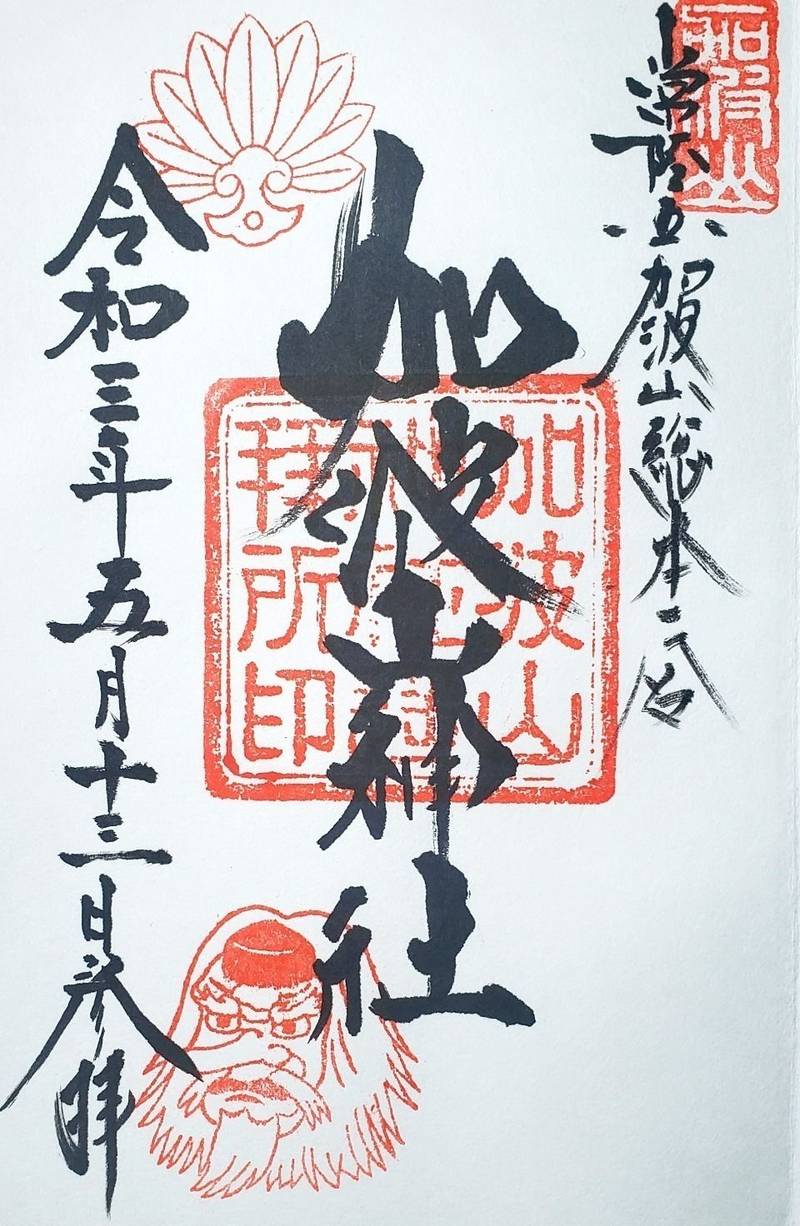 加波山
常陸国加波山総本宮
加波山神社
加波山
拝所印
令和三年五月十三日参拝